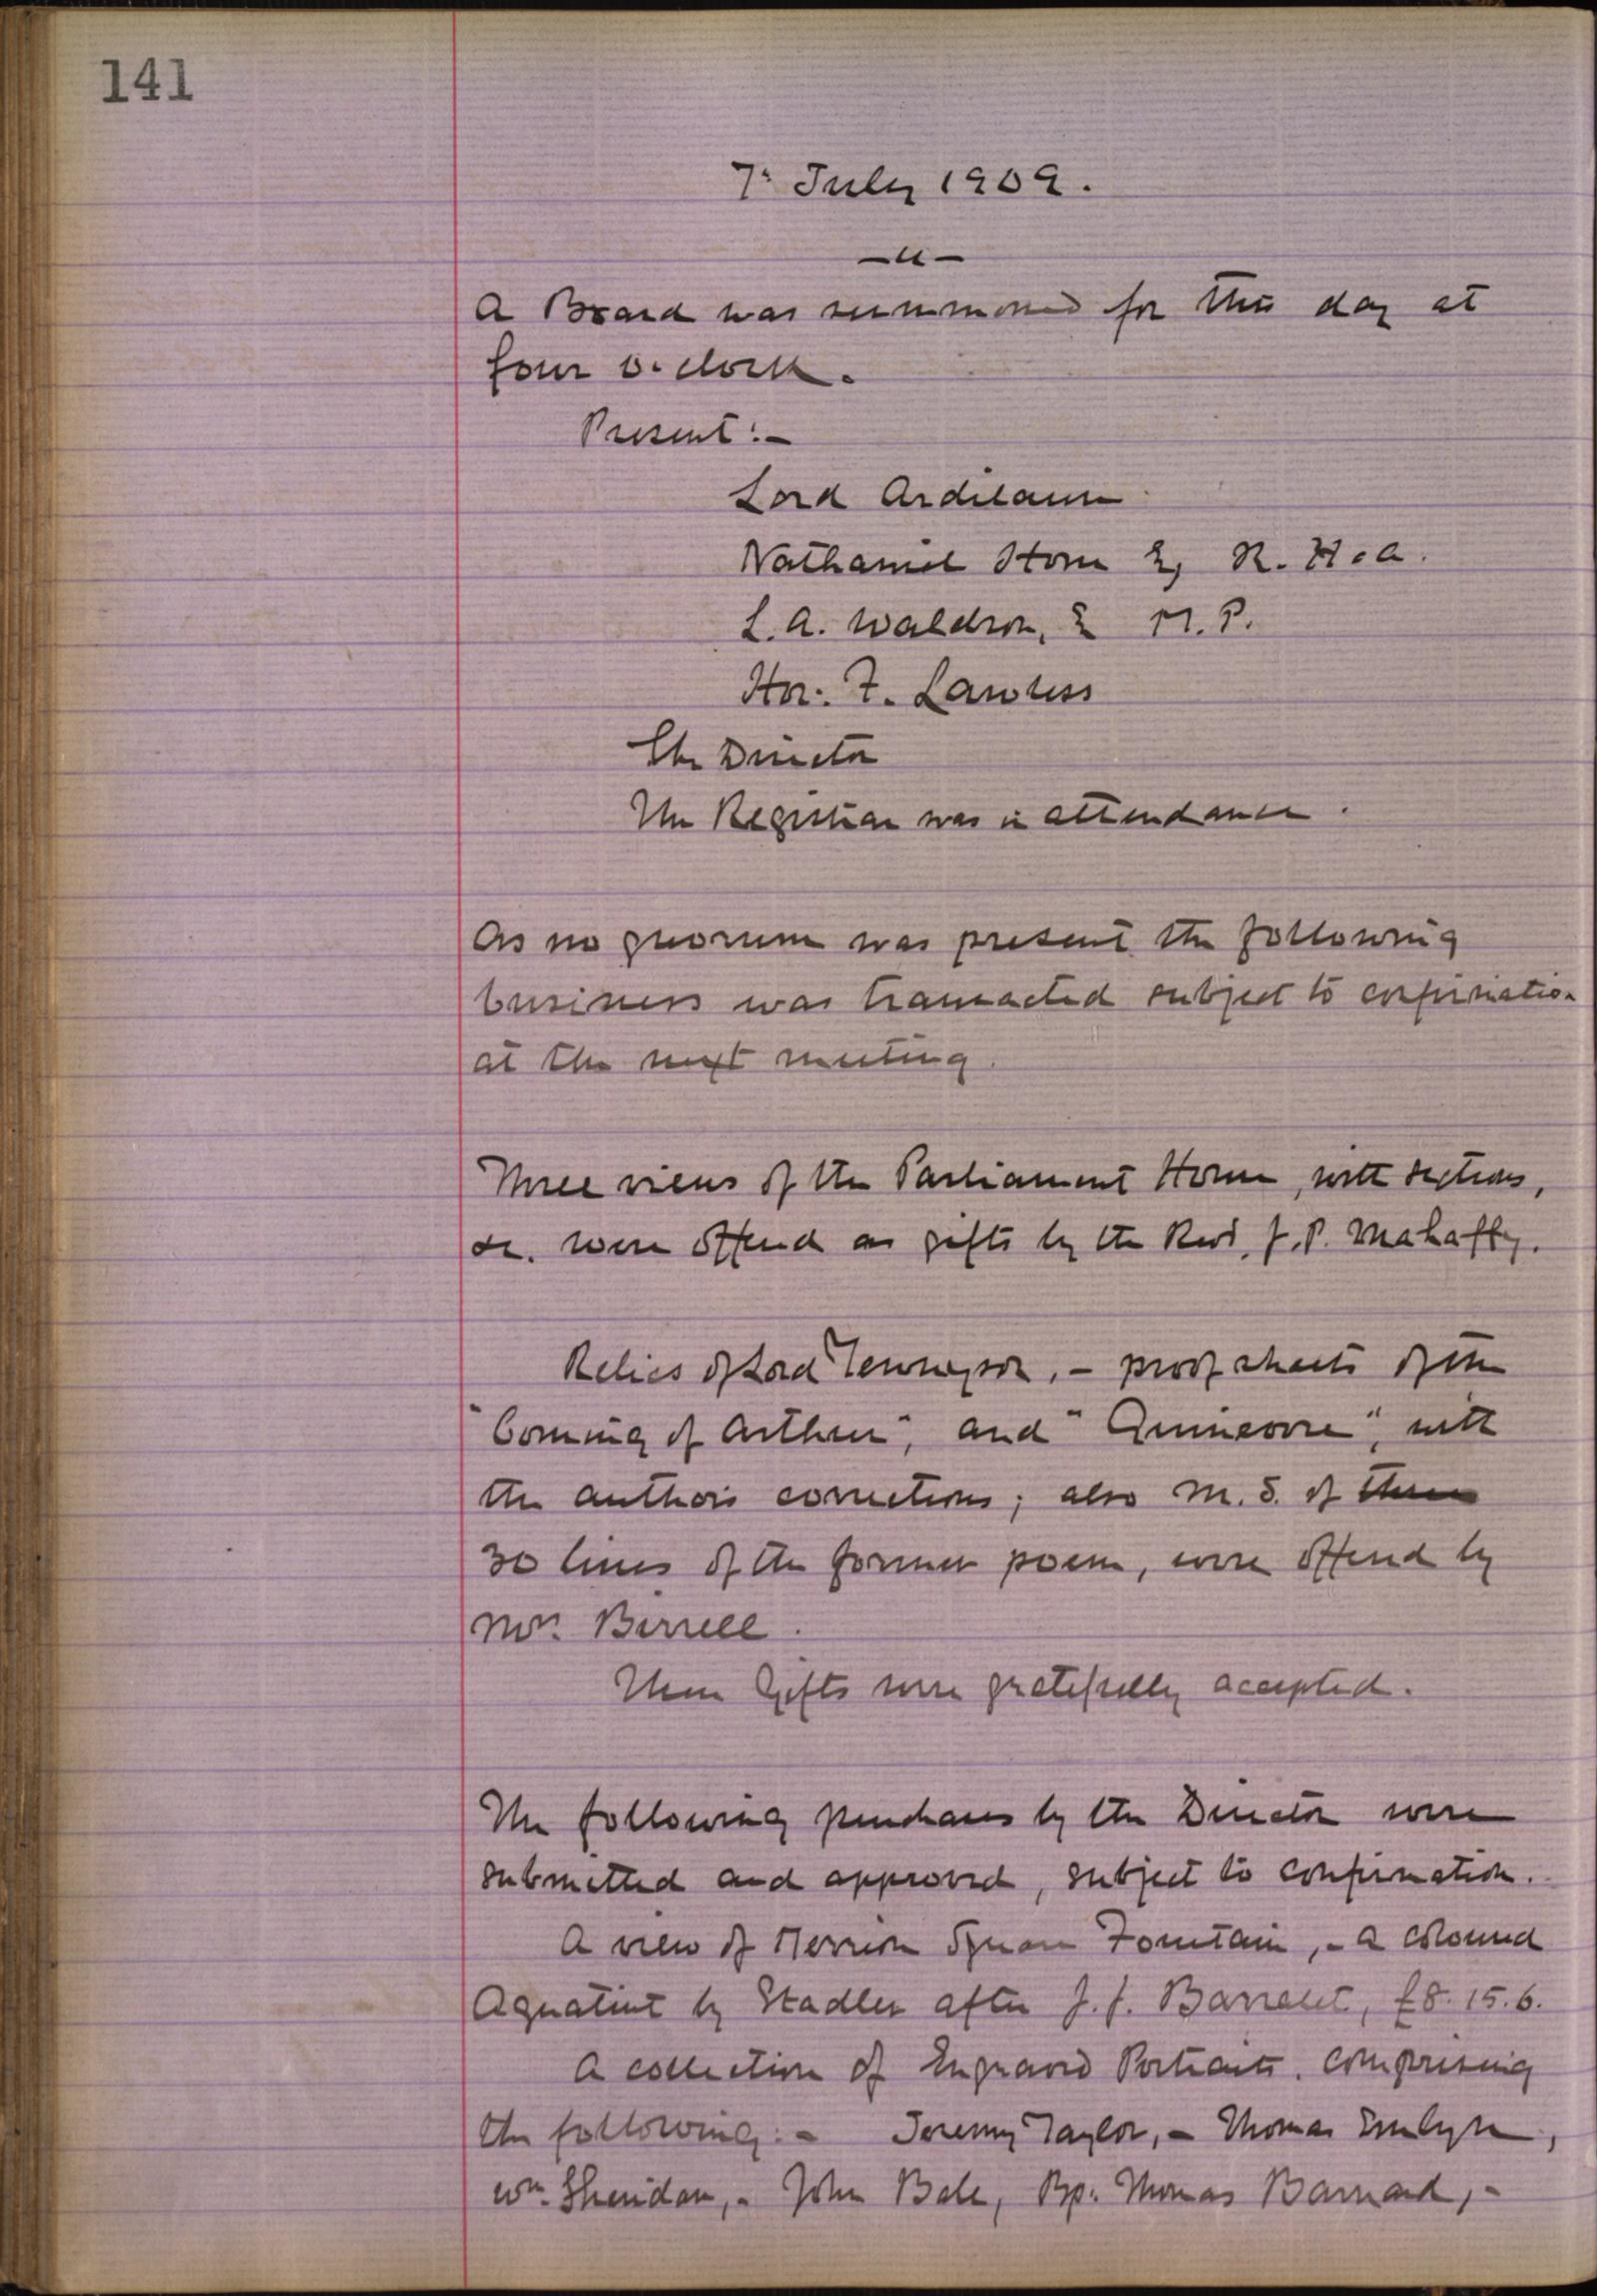 141
7th July 1909.
—"—
A Board was summoned for this day at
four o'clock.
Present:-
Lord Ardilaun
Nathaniel Hone Esq R.H.A.
L.A. Waldron, Esq M.P.
Hon: F. Lawless
The Director
The Registrar was in attendance.
As no quorum was present the following
business was transacted subject to confirmation
at the next meeting.
Three views of the Parliament House, with sections,
&c. were offered as gifts by the Revd. J.P. Mahaffy.
Relics of Lord Tennyson, - proof sheets of the
"Coming of Arthur", and "Guinevere", with
the author's corrections; also M.S. of
30 lines of the former poem, were offered by
Mrs. Birrell.
These Gifts were gratefully accepted.
The following purchases by the Director were
submitted and approved, subject to confirmation.
A view of Merrion Square Fountain, - a coloured
Aquatint by Stadler after J.J. Barralet, £8.15.6.
A collection of Engraved Portraits, comprising
the following:- Jeremy Taylor, - Thomas Emlyn,
Wm. Sheridan, - John Bale, Bp. Thomas Barnard, -